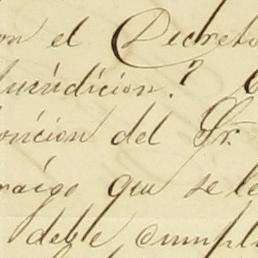 on el Decreto
Juridicion.?
icion del Sr.
que se le
debe cumpl